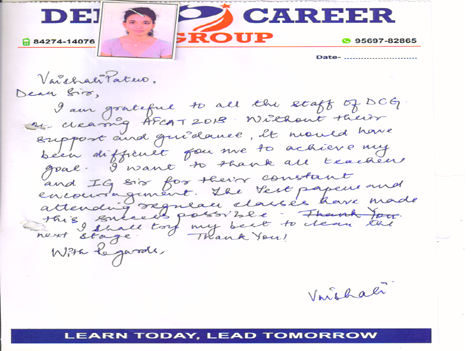 DE CAREER
GROUP
84274-14076 95697-82865
Date- ........................
Vaishali
Dear Sir,
I am grateful to all the staff of DCG
clearing AFCAT 2018. Without their
support and guidance, it would have
been difficult for me to achieve my
goal. I want to thank all teachers
and IG sir for their constant
encouragement. The Test papers and
attending regular classes have made
this, success possible. Thank You
I shall try my best to clear the
next stage. Thank You!
With Regards,
Vaishali
LEARN TODAY, LEAD TOMORROW